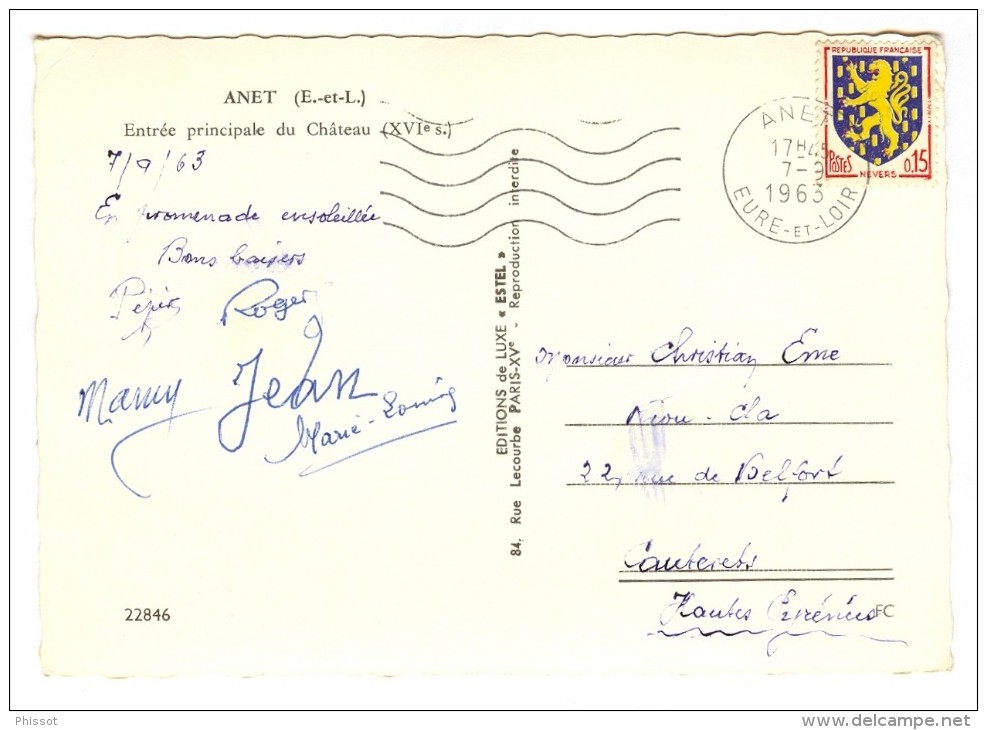 ANET (E.-et-L.)
Entrée principale du Château (XVIe s.)
7/9/63
En promenade ensoleillée
Bons baisers
Roger
Mamy Jean
Marie-Louise
22846
EDITIONS de LUXE « ESTEL »
84, Rue Lecourbe PARIS-XVe - Reproduction interdite
REPUBLIQUE FRANÇAISE
POSTES
NEVERS
0,15
ANET
17H45
7-9
1963
EURE-ET-LOIR
Monsieur Christian Eme
22, rue de Belfort
Cauterets
Hautes Pyrénées
FC
Phissot
www.delcampe.net